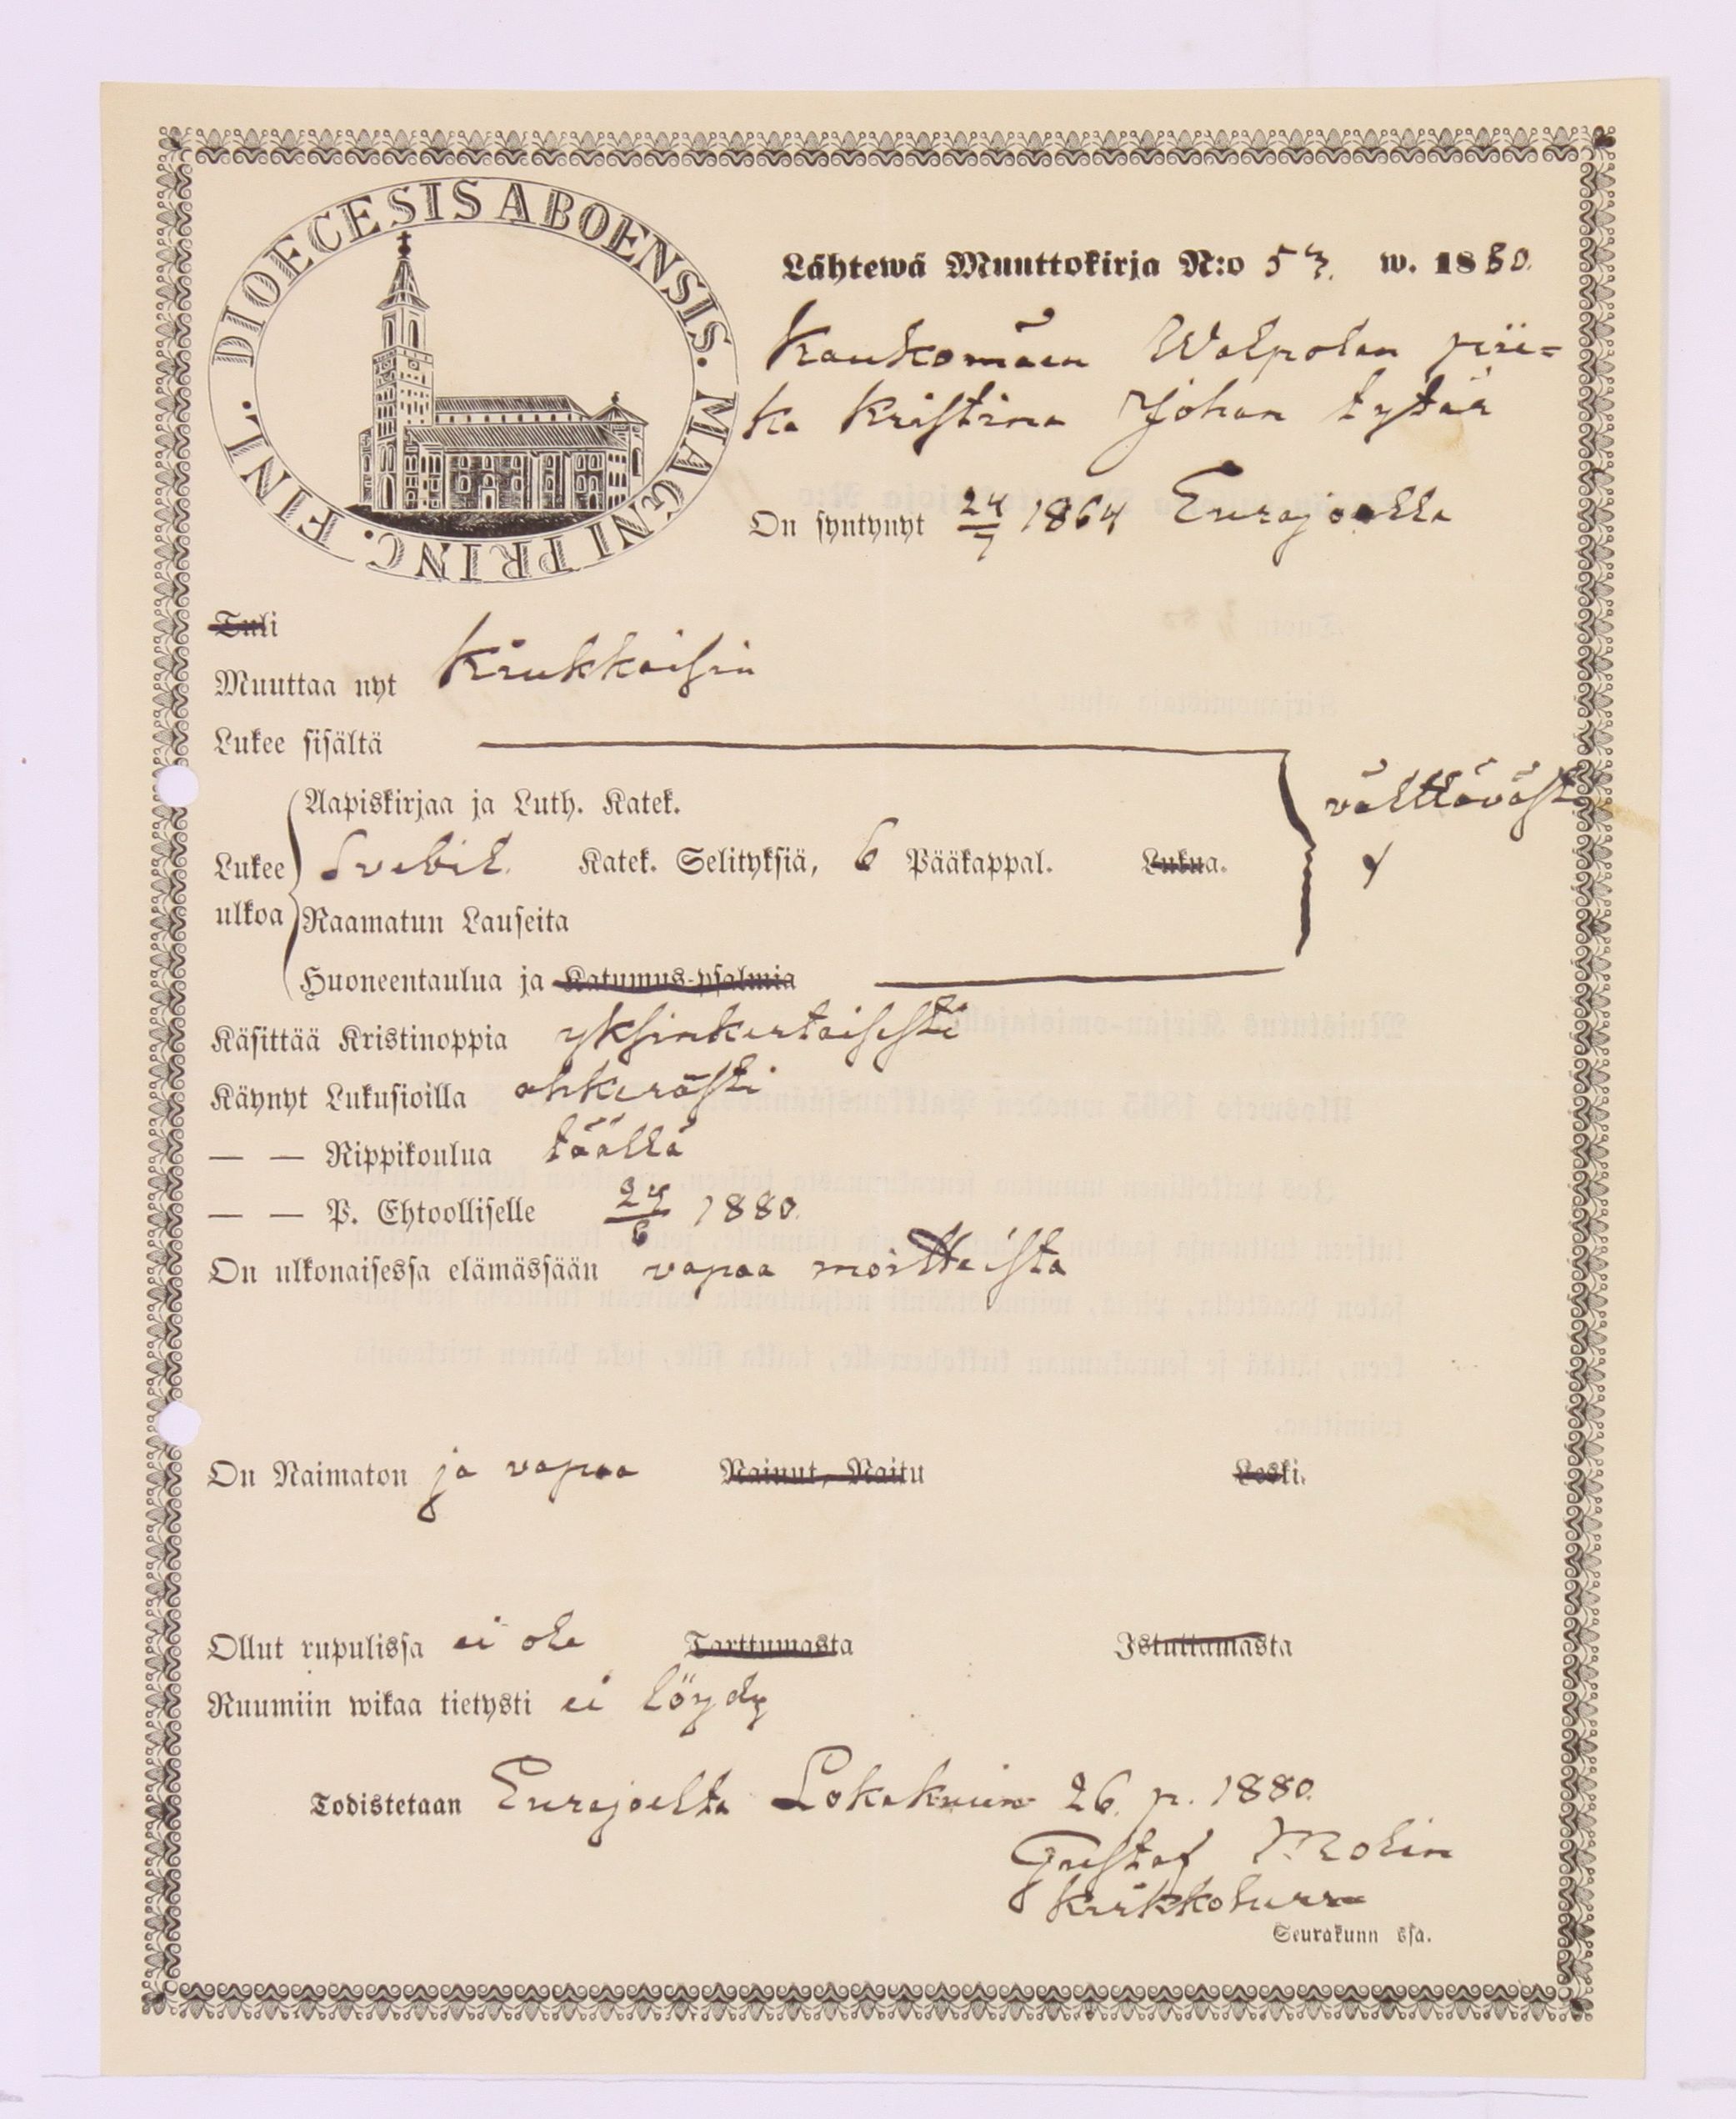 DIOECESIS ABOENSIS. MAGNI PRINC. FINL.
Lähtewä Muuttokirja N:o 53. w. 1880.
Kaukomäen Walpolan pii=
ka Kristina Johan tytär
On syntynyt 24/7 1864 Eurajoella
Tuli
Muuttaa nyt Kiukkaisiin
Lukee sisältä
välttäväst
Aapiskirjaa ja Luth. Katek.
Lukee ulkoa Svebil. Katek. Selityksiä, 6 Pääkappal. Lukua.
Raamatun Lauseita
Huoneentaulua ja Katumus-psalmia
Käsittää Kristinoppia yksinkertaisesti
Käynyt Lukusioilla ahkerasti
— — Rippikoulua täällä
— — P. Ehtoolliselle 24/6 1880.
On ulkonaisessa elämässään vapaa moitteista
On Naimaton ja vapaa Nainut, Naitu Leski.
Ollut rupulissa ei ole Tarttumasta Istuttamasta
Ruumiin wikaa tietysti ei löydy
Todistetaan Eurajoelta Lokakuun 26. p. 1880.
Gustaf Molin
Kirkkoherra
Seurakunn ssa.